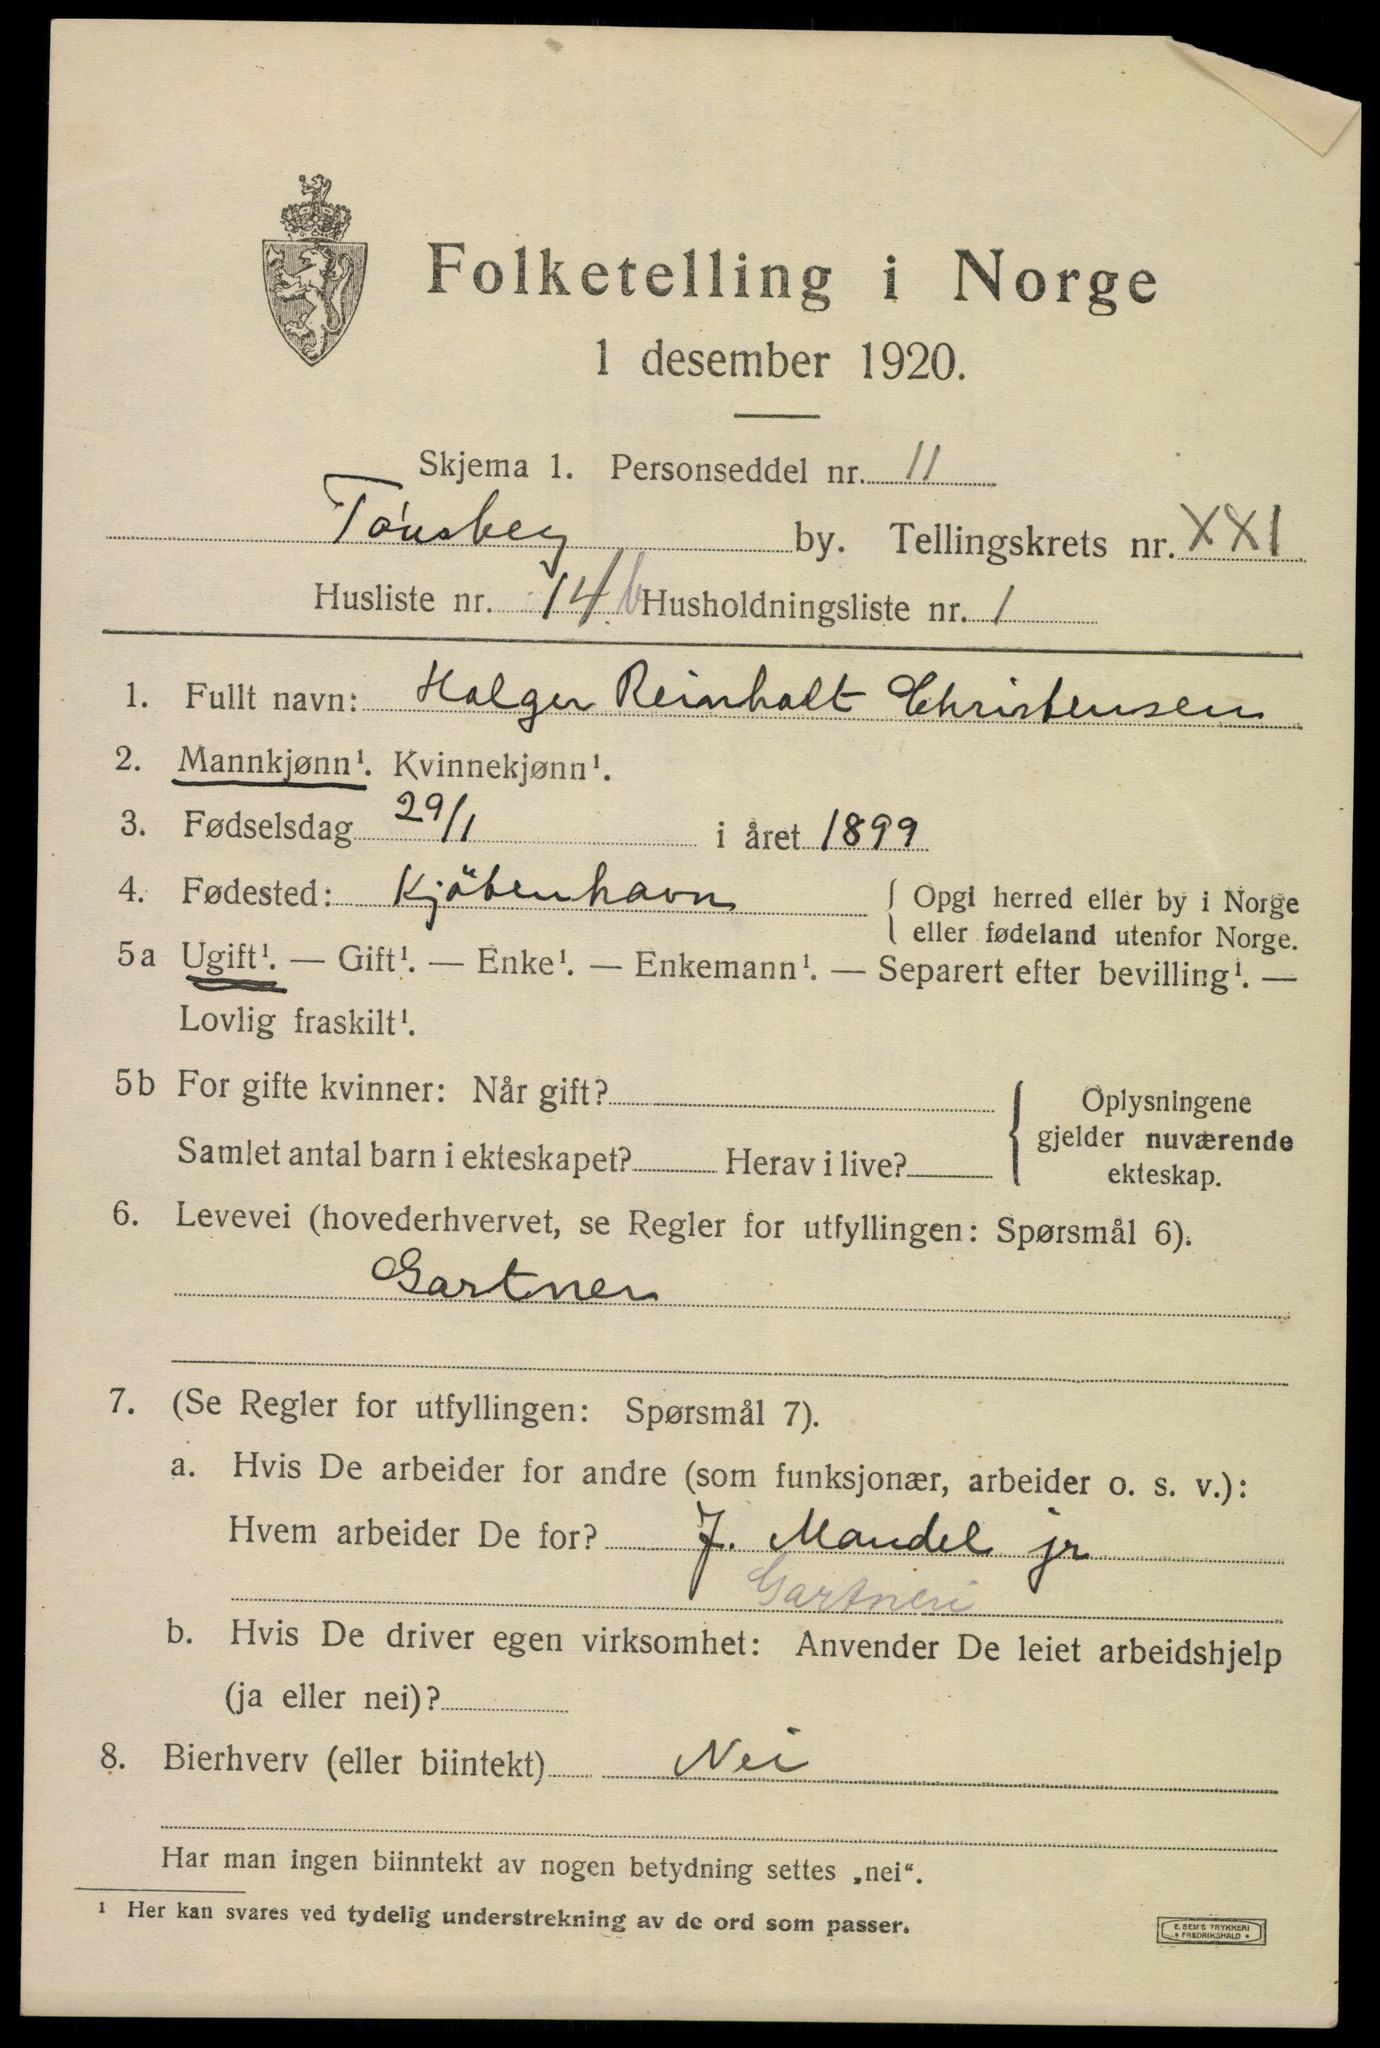 Folketelling i Norge
1 desember 1920.
Skjema 1. Personseddel nr. 11
Tønsberg by. Tellingskrets nr. XXI
Husliste nr. 14 b Husholdningsliste nr. 1
1. Fullt navn: Holger Reinholt Christensen
2. Mannkjønn¹. Kvinnekjønn¹.
3. Fødselsdag 29/1 i året 1899
4. Fødested: Kjöbenhavn { Opgi herred eller by i Norge
eller fødeland utenfor Norge.
5a Ugift¹. — Gift¹. — Enke¹. — Enkemann¹. — Separert efter bevilling¹. —
Lovlig fraskilt¹.
5b For gifte kvinner: Når gift? { Oplysningene
gjelder nuværende
Samlet antal barn i ekteskapet? Herav i live?
ekteskap.
6. Levevei (hovederhvervet, se Regler for utfyllingen: Spørsmål 6).
Gartner
7. (Se Regler for utfyllingen: Spørsmål 7).
a. Hvis De arbeider for andre (som funksjonær, arbeider o. s. v.):
Hvem arbeider De for? J. Mandel jr
Gartneri
b. Hvis De driver egen virksomhet: Anvender De leiet arbeidshjelp
(ja eller nei)?
8. Bierhverv (eller biintekt) Nei
Har man ingen biinntekt av nogen betydning settes „nei“.
¹ Her kan svares ved tydelig understrekning av de ord som passer.
E. SEM'S TRYKKERI
• FREDRIKSHALD •